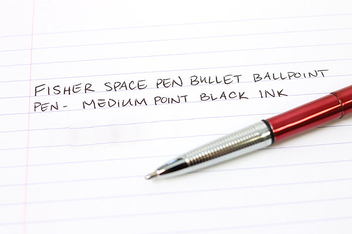 FISHER SPACE PEN BULLET BALLPOINT
PEN- MEDIUM POINT BLACK INK